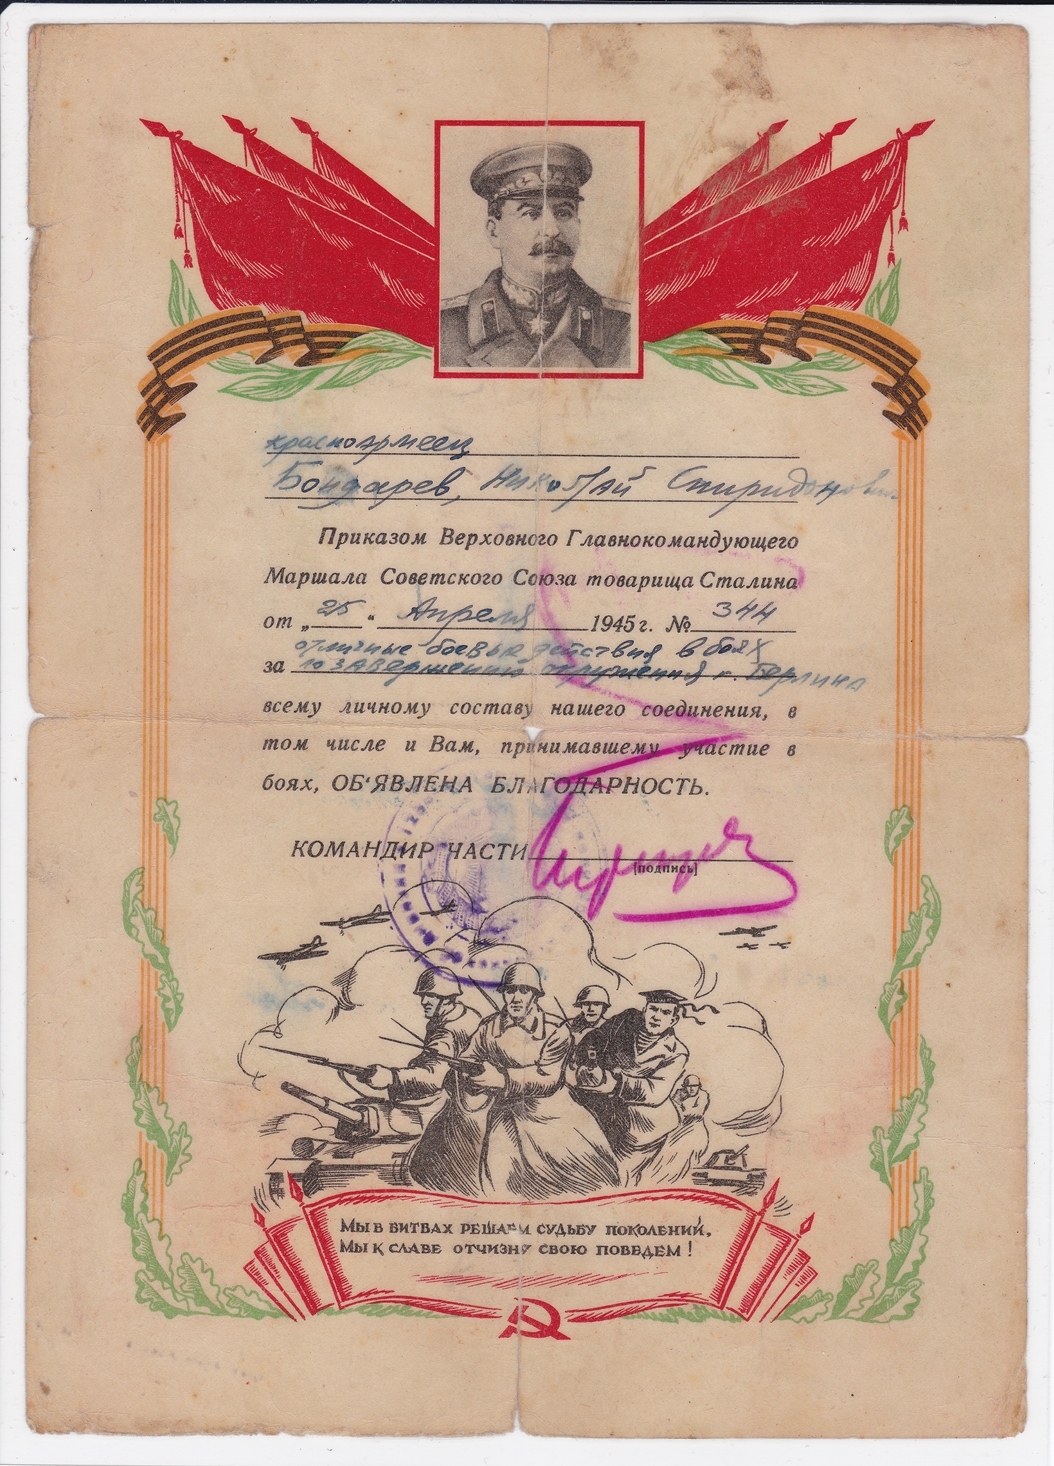 красноармеец
Бондарев, Николай Спиридонович
Приказом Верховного Главнокомандующего
Маршала Советского Союза товарища Сталина
от „25“ Апреля 1945 г. № 344
отличные боевые действия в боях
за по завершению окружения г. Берлина
всему личному составу нашего соединения, в
том числе и Вам, принимавшему участие в
боях, ОБ'ЯВЛЕНА БЛАГОДАРНОСТЬ.
КОМАНДИР ЧАСТИ
[подпись]
МЫ В БИТВАХ РЕШАЕМ СУДЬБУ ПОКОЛЕНИЙ,
МЫ К СЛАВЕ ОТЧИЗНУ СВОЮ ПОВЕДЕМ!